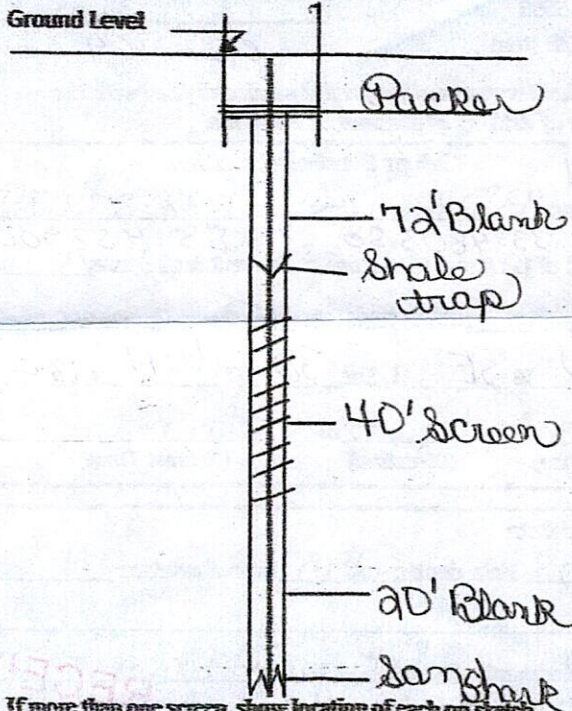 Ground Level
Packer
72' Blank
Shale
trap
40' Screen
20' Blank
Sandshark
If more than one screen, show location of each on sketch
RECE